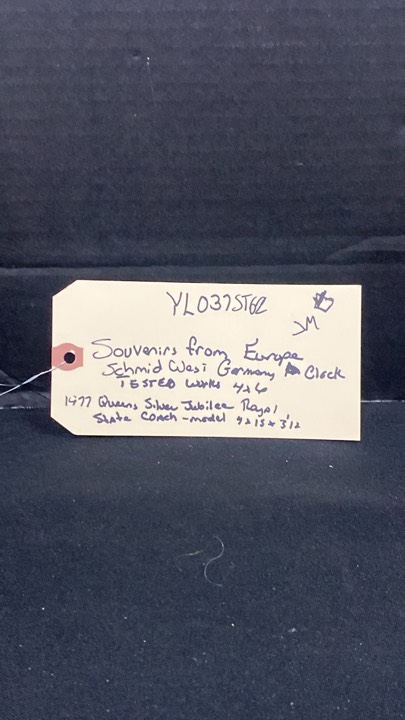 YL037ST62
JM
Souvenirs from Europe
Schmid West Germany Clock
TESTED works 4x6
1977 Queens Silver Jubilee Royal
State Coach - model 4x15x3 1/2